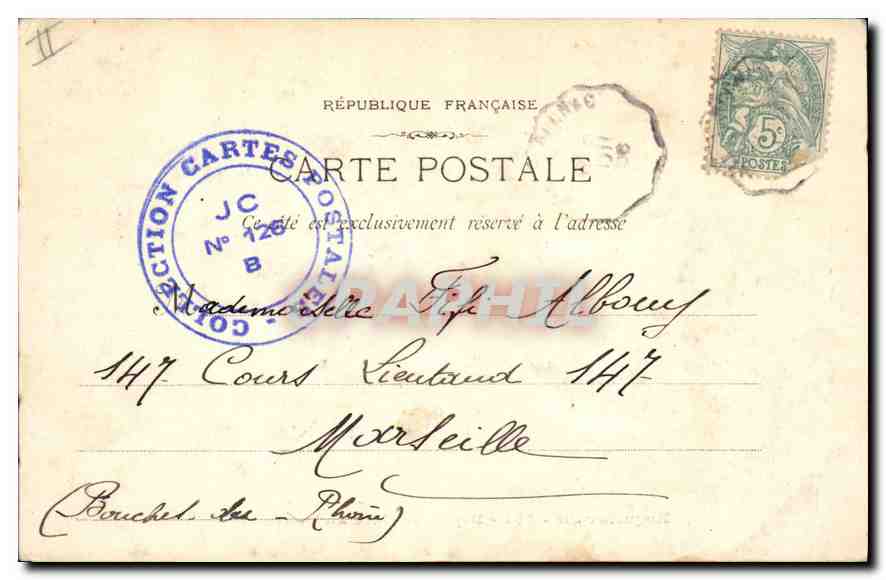 II
RÉPUBLIQUE FRANÇAISE
CARTE POSTALE
Ce côté est exclusivement réservé à l'adresse
5c
POSTES
COLLECTION CARTES POSTALES
JC
No 126
B
DELCAMPHIL
Mademoiselle Fifi Albouy
147 Cours Lieutaud 147
Marseille
(Bouches du - Rhône)